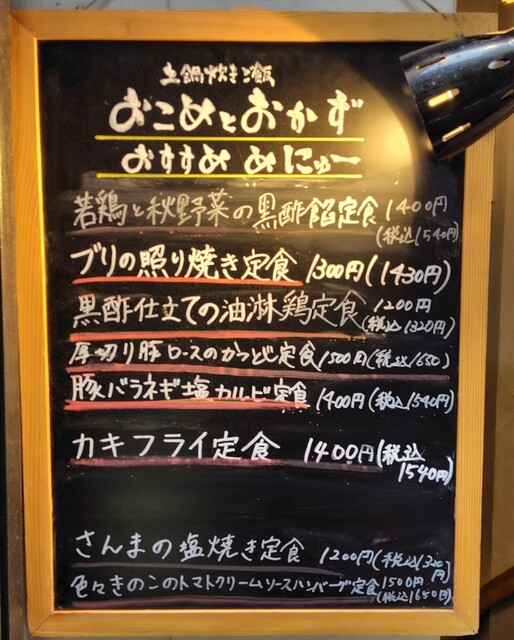 土鍋炊きご飯
おこめとおかず
おすすめめにゅー
若鶏と秋野菜の黒酢餡定食 1400円
(税込1540円)
ブリの照り焼き定食 1300円(1430円)
黒酢仕立ての油淋鶏定食 1200円
(税込1320円)
厚切り豚ロースのかつとじ定食 1500円(税込1650)
豚バラネギ塩カルビ定食 1400円(税込1540円)
カキフライ定食 1400円(税込
1540円)
さんまの塩焼き定食 1200円(税込1320
円)
色々きのこのトマトクリームソースハンバーグ定食 1500円
(税込1650円)